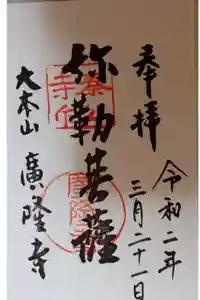 奉拝
令和二年
三月二十一日
弥勒菩薩
大本山 廣隆寺